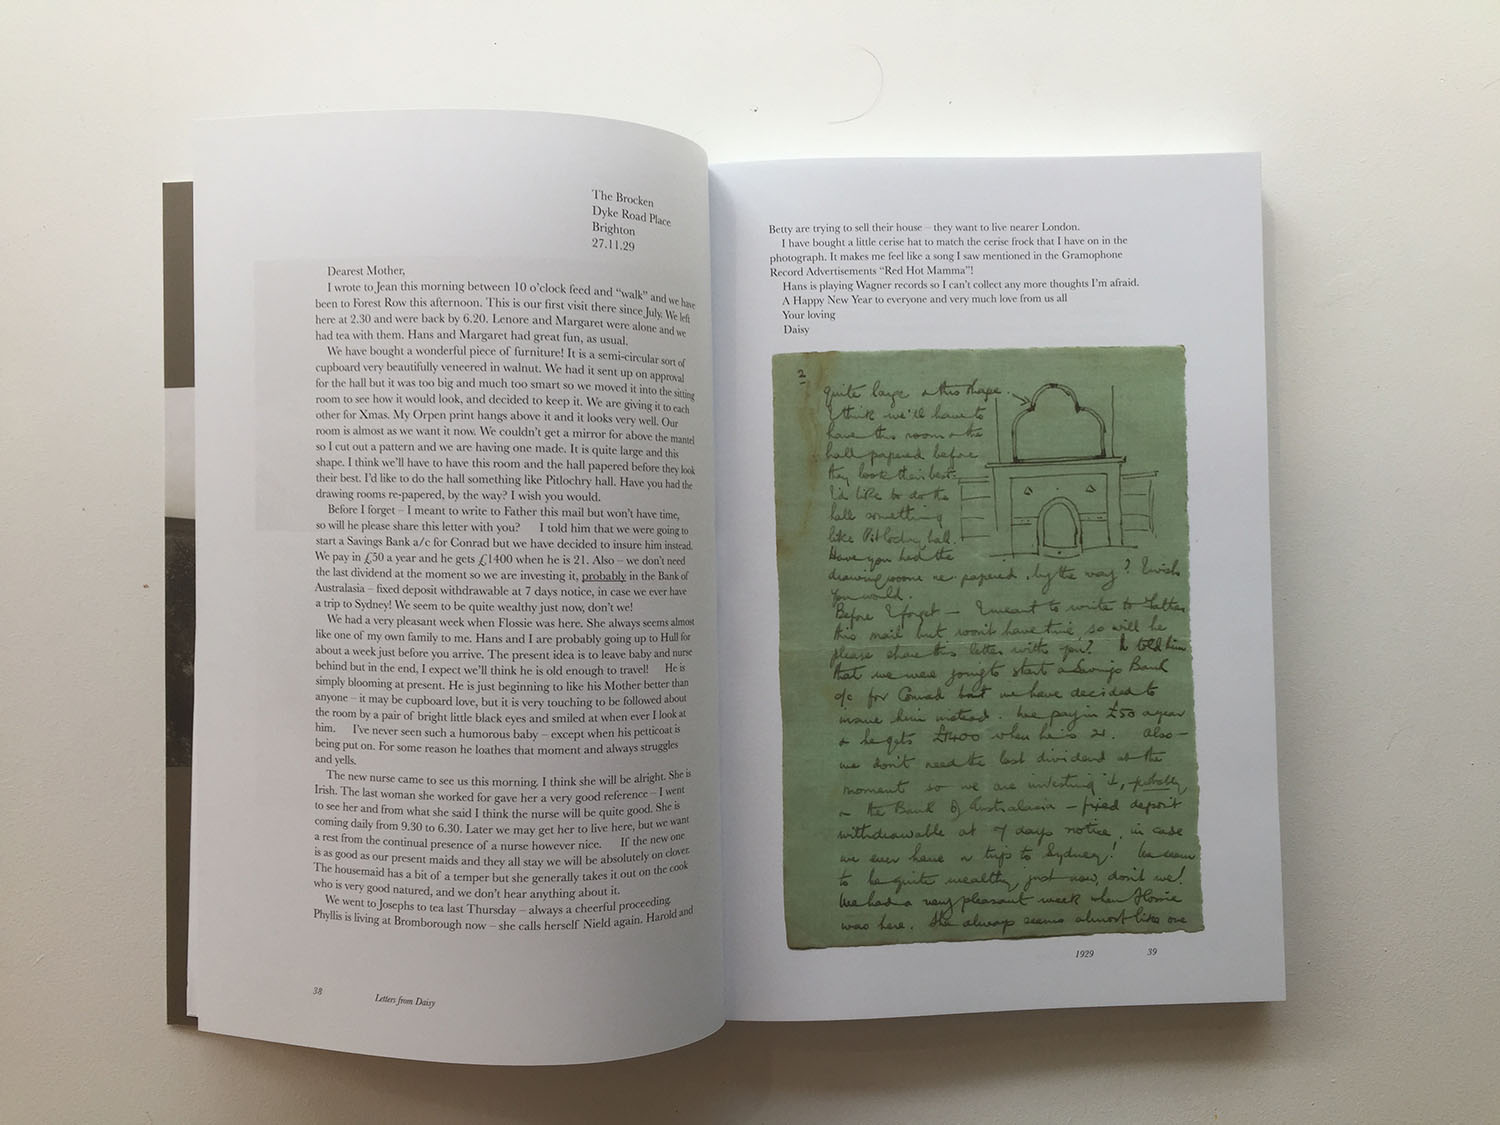 The Brocken
Dyke Road Place
Brighton
27.11.29
Dearest Mother,
I wrote to Jean this morning between 10 o'clock feed and "walk" and we have
been to Forest Row this afternoon. This is our first visit there since July. We left
here at 2.30 and were back by 6.20. Lenore and Margaret were alone and we
had tea with them. Hans and Margaret had great fun, as usual.
We have bought a wonderful piece of furniture! It is a semi-circular sort of
cupboard very beautifully veneered in walnut. We had it sent up on approval
for the hall but it was too big and much too smart so we moved it into the sitting
room to see how it would look, and decided to keep it. We are giving it to each
other for Xmas. My Orpen print hangs above it and it looks very well. Our
room is almost as we want it now. We couldn't get a mirror for above the mantel
so I cut out a pattern and we are having one made. It is quite large and this
shape. I think we'll have to have this room and the hall papered before they look
their best. I'd like to do the hall something like Pitlochry hall. Have you had the
drawing rooms re-papered, by the way? I wish you would.
Before I forget – I meant to write to Father this mail but won't have time,
so will he please share this letter with you? I told him that we were going to
start a Savings Bank a/c for Conrad but we have decided to insure him instead.
We pay in £50 a year and he gets £1400 when he is 21. Also – we don't need
the last dividend at the moment so we are investing it, probably in the Bank of
Australasia – fixed deposit withdrawable at 7 days notice, in case we ever have
a trip to Sydney! We seem to be quite wealthy just now, don't we!
We had a very pleasant week when Flossie was here. She always seems almost
like one of my own family to me. Hans and I are probably going up to Hull for
about a week just before you arrive. The present idea is to leave baby and nurse
behind but in the end, I expect we'll think he is old enough to travel! He is
simply blooming at present. He is just beginning to like his Mother better than
anyone – it may be cupboard love, but it is very touching to be followed about
the room by a pair of bright little black eyes and smiled at when ever I look at
him. I've never seen such a humorous baby – except when his petticoat is
being put on. For some reason he loathes that moment and always struggles
and yells.
The new nurse came to see us this morning. I think she will be alright. She is
Irish. The last woman she worked for gave her a very good reference – I went
to see her and from what she said I think the nurse will be quite good. She is
coming daily from 9.30 to 6.30. Later we may get her to live here, but we want
a rest from the continual presence of a nurse however nice. If the new one
is as good as our present maids and they all stay we will be absolutely on clover.
The housemaid has a bit of a temper but she generally takes it out on the cook
who is very good natured, and we don't hear anything about it.
We went to Josephs to tea last Thursday – always a cheerful proceeding.
Phyllis is living at Bromborough now – she calls herself Nield again. Harold and
38 Letters from Daisy
Betty are trying to sell their house – they want to live nearer London.
I have bought a little cerise hat to match the cerise frock that I have on in the
photograph. It makes me feel like a song I saw mentioned in the Gramophone
Record Advertisements "Red Hot Mamma"!
Hans is playing Wagner records so I can't collect any more thoughts I'm afraid.
A Happy New Year to everyone and very much love from us all
Your loving
Daisy
2
quite large & this shape.
I think we'll have to
have this room & the
hall papered before
they look their best.
I'd like to do the
hall something
like Pitlochry hall.
Have you had the
drawing rooms re-papered, by the way? I wish
you would.
Before I forget – I meant to write to Father
this mail but won't have time, so will he
please share this letter with you? I told him
that we were going to start a Savings Bank
a/c for Conrad but we have decided to
insure him instead. We pay in £50 a year
& he gets £1400 when he is 21. Also –
we don't need the last dividend at the
moment so we are investing it, probably
in the Bank of Australasia – fixed deposit
withdrawable at 7 days notice, in case
we ever have a trip to Sydney! We seem
to be quite wealthy just now, don't we!
We had a very pleasant week when Flossie
was here. She always seems almost like one
1929 39